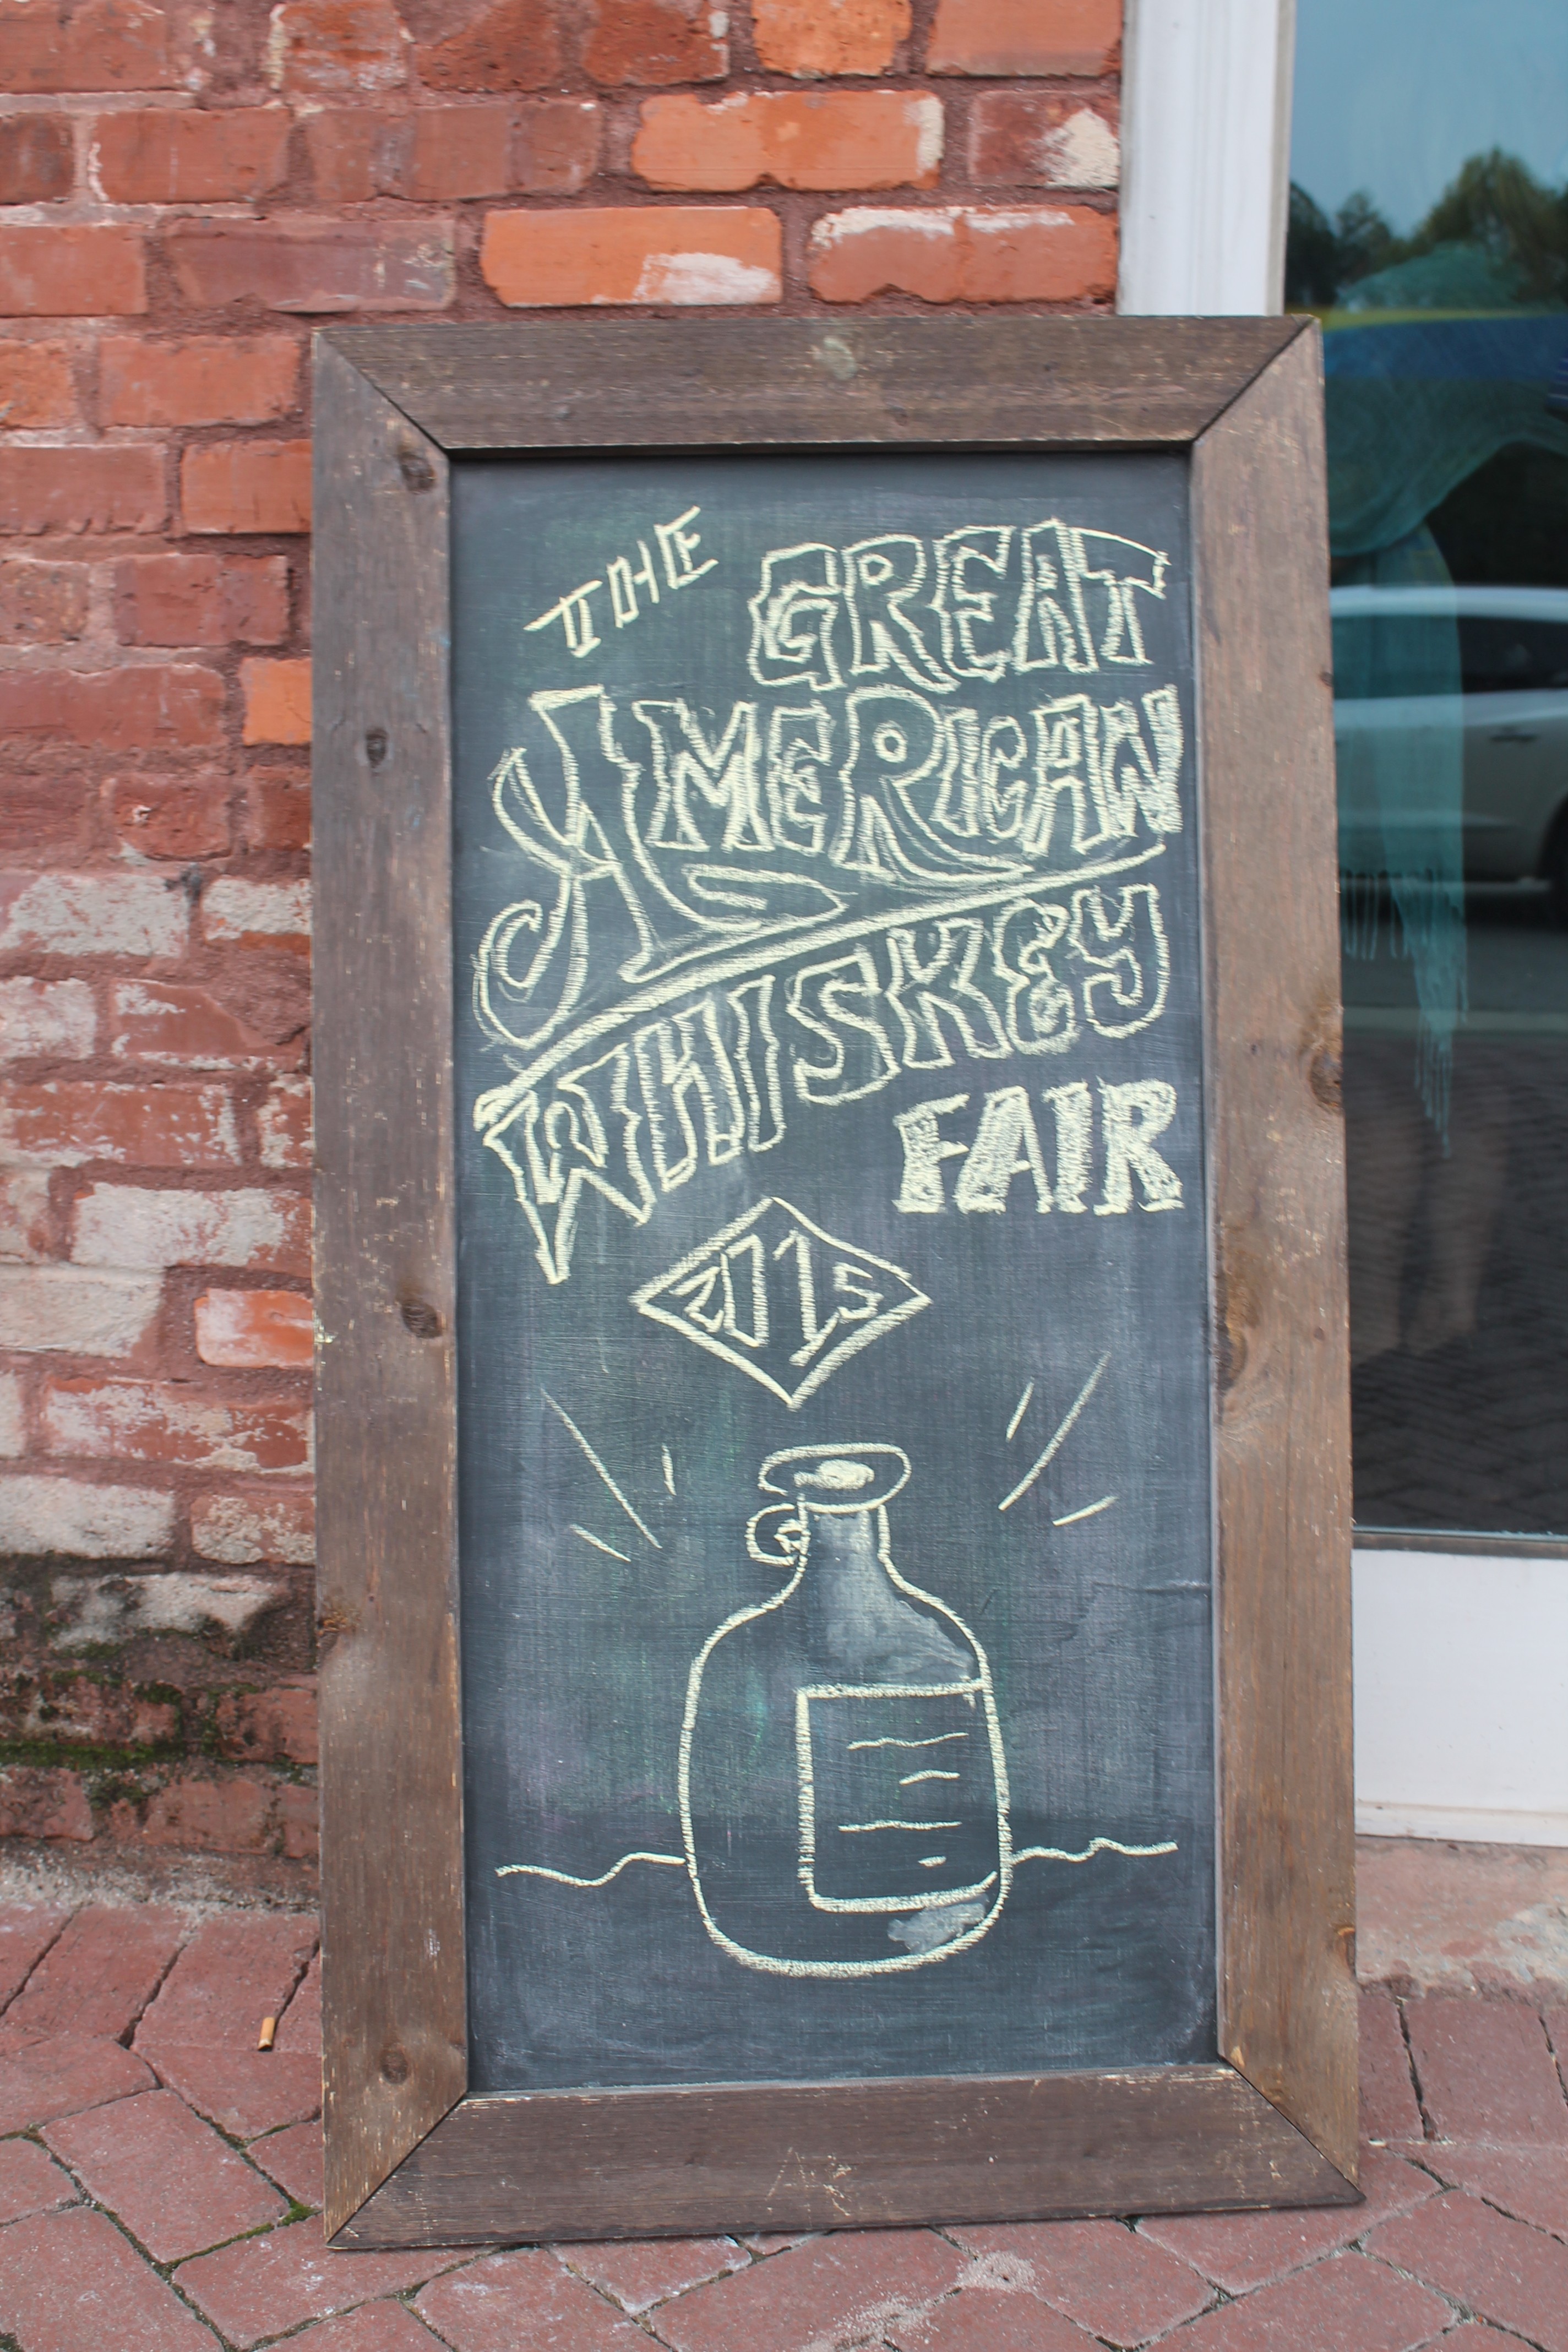 THE GREAT
AMERICAN
WHISKEY
FAIR
2015